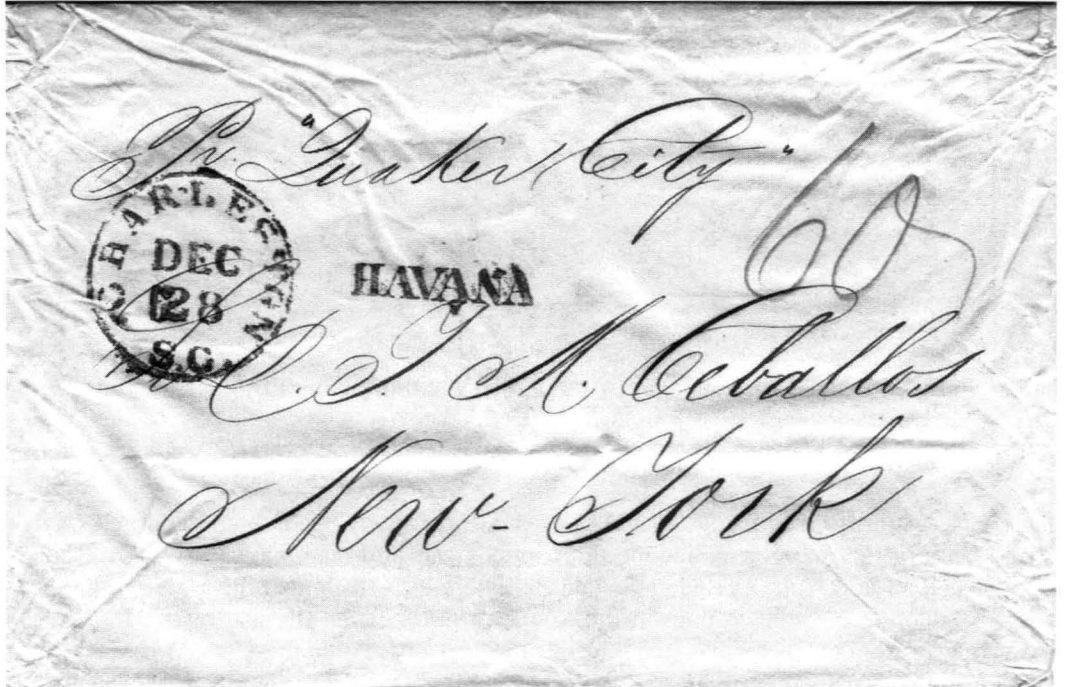 Pr. "Quaker City"
60
CHARLESTON
DEC
28
S.C.
HAVANA
J. M. Ceballos
New-York